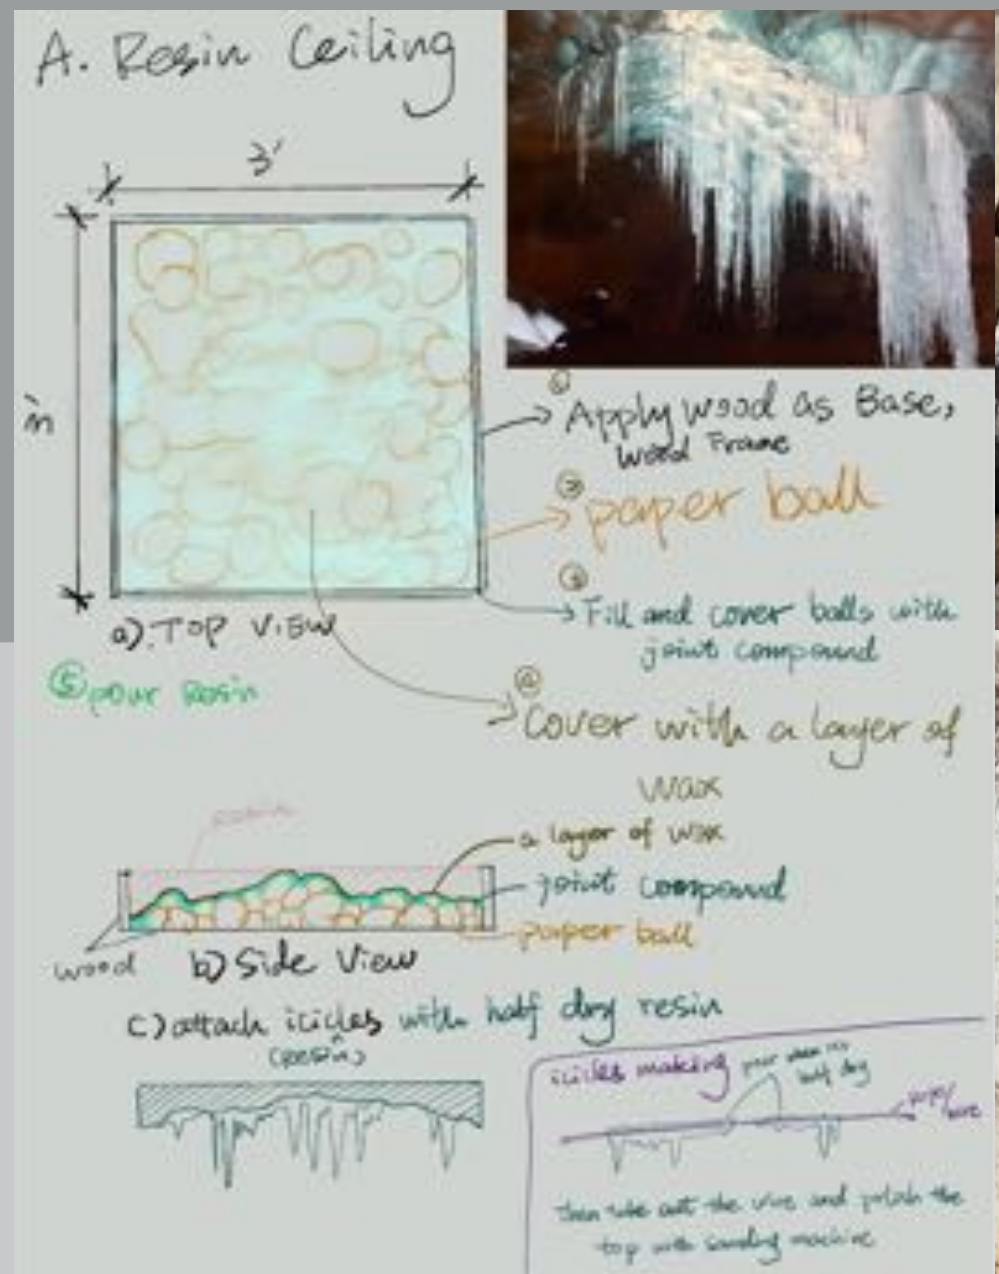 A. Resin Ceiling
3'
3'
① Apply wood as Base,
wood Frame
② paper ball
③ Fill and cover balls with
joint compound
a). TOP VIEW
⑤ pour Resin
④ Cover with a layer of
wax
resin
a layer of wax
joint compound
paper ball
wood
b) Side View
c) attach icicles with half dry resin
(resin)
icicles making
pour when it's
half dry
wire
then take out the wire and polish the
top with sanding machine